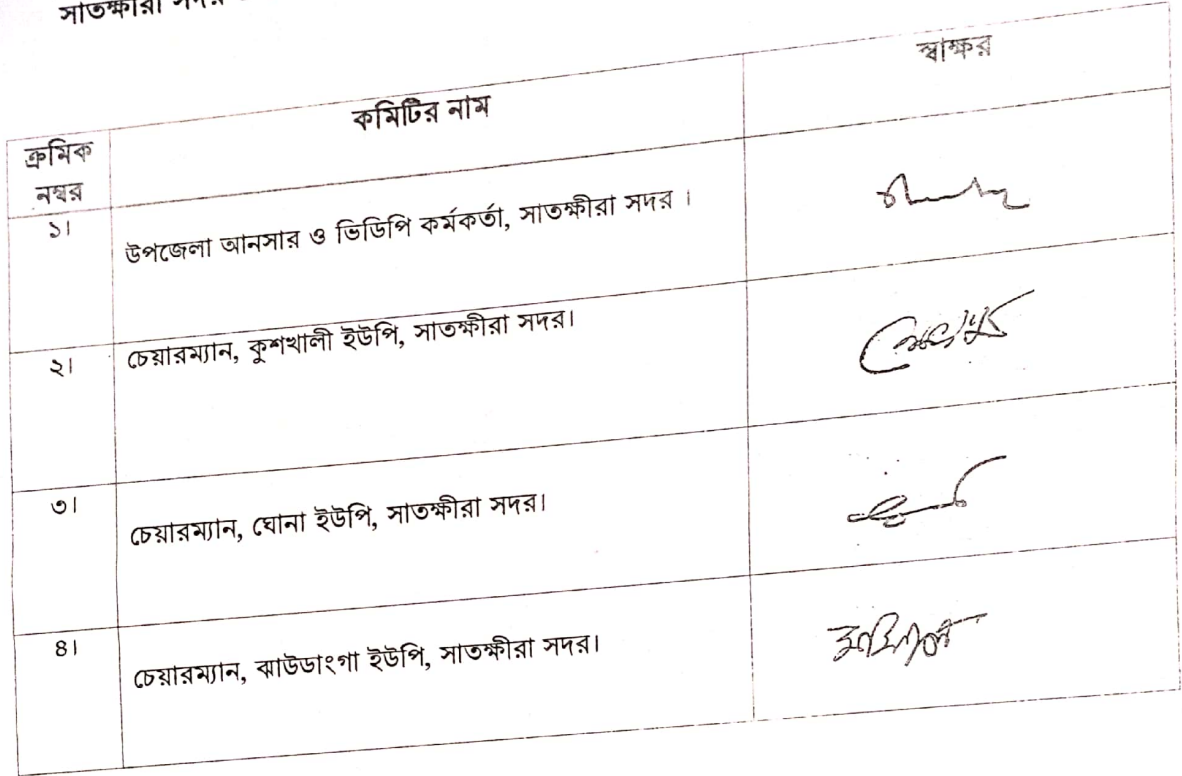 সাতক্ষীরা সদর
স্বাক্ষর
কমিটির নাম
ক্রমিক
নম্বর
১। উপজেলা আনসার ও ভিডিপি কর্মকর্তা, সাতক্ষীরা সদর ।
২। চেয়ারম্যান, কুশখালী ইউপি, সাতক্ষীরা সদর।
৩। চেয়ারম্যান, ঘোনা ইউপি, সাতক্ষীরা সদর।
৪। চেয়ারম্যান, ঝাউডাংগা ইউপি, সাতক্ষীরা সদর।